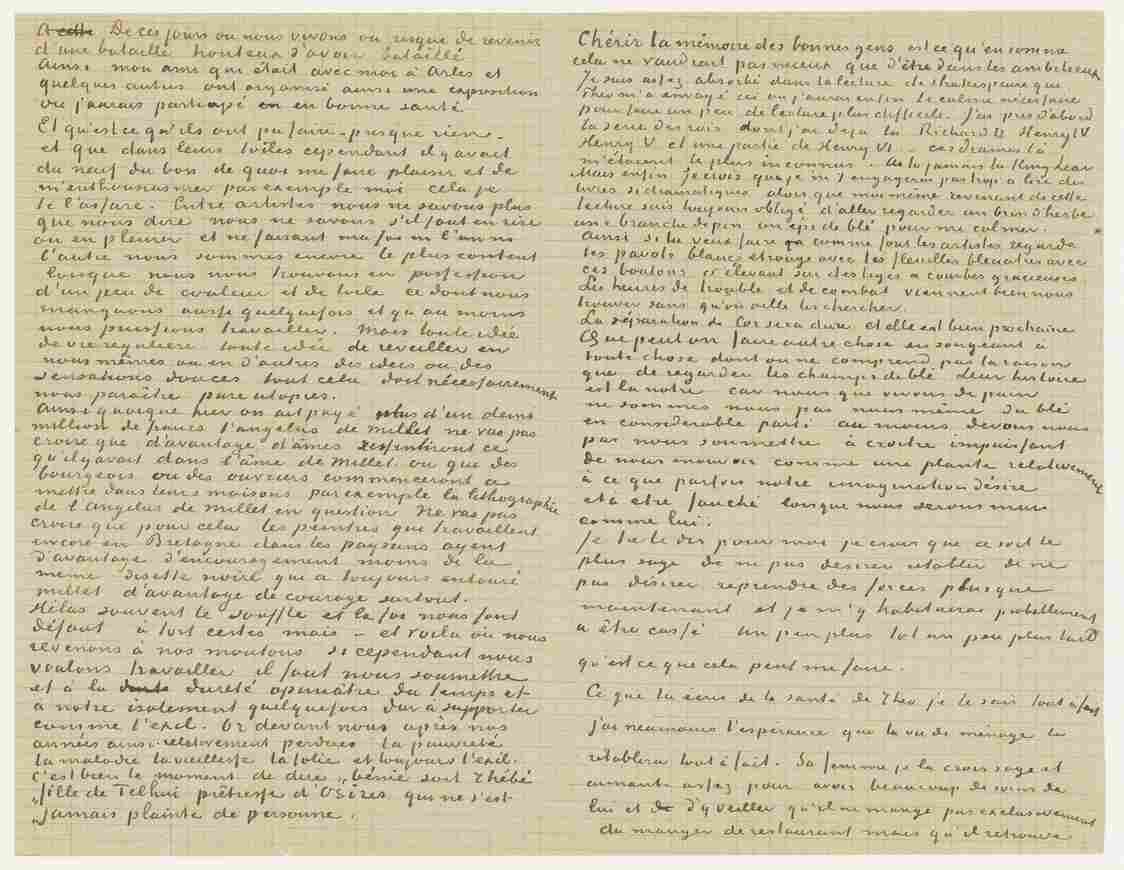 A cette De ces jours ou nous vivons on risque de revenir
d'une bataille honteux d'avoir bataillé
Ainsi mon ami qui était avec moi à Arles et
quelques autres ont organisé ainsi une exposition
où j'aurais participé en bonne santé.
Et qu'est ce qu'ils ont pu faire – presque rien –
et que dans leurs toiles cependant il y avait
du neuf du bon de quoi me faire plaisir et de
m'enthousiasmer par exemple moi cela je
te l'assure. Entre artistes nous ne savons plus
que nous dire nous ne savons s'il faut en rire
ou en pleurer et ne faisant ma foi ni l'un ni
l'autre nous sommes encore le plus content
lorsque nous nous trouvons en possession
d'un peu de couleur et de toile ce dont nous
manquons aussi quelquefois et qu'au moins
nous puissions travailler. Mais toute idée
de vie regulière toute idée de reveiller en
nous mêmes ou en d'autres des idées ou des
sensations douces tout cela doit nécessairement
nous paraître pure utopies.
Ainsi quoique hier on ait payé plus d'un demi
million de francs l'angelus de Millet ne vas pas
croire que d'avantage d'âmes sentiront ce
qu'il y avait dans l'âme de Millet ou que des
bourgeois ou des ouvriers commenceront à
mettre dans leurs maisons par exemple la lithographie
de l'angelus de Millet en question Ne vas pas
croire que pour cela les peintres qui travaillent
encore en Bretagne dans les paysans ayent
d'avantage d'encouragement moins de la
meme disette noire qui a toujours entouré
millet d'avantage de courage surtout.
Hélas souvent le souffle et la foi nous font
défaut à tort certes mais – et voilà où nous
revenons à nos moutons si cependant nous
voulons travailler il faut nous soumettre
et à la dureté opiniâtre du temps et
à notre isolement quelquefois dur à supporter
comme l'exil. Or devant nous après nos
années ainsi relativement perdues la pauvreté
la maladie la vieillesse la folie et toujours l'exil.
C'est bien le moment de dire „bénie soit Thébé
„fille de Telhui prêtresse d'Osiris qui ne s'est
„jamais plainte de personne.
Chérir la mémoire des bonnes gens est ce qu'en somme
cela ne vaudrait pas mieux que d'être dans les ambitieux
Je suis assez absorbé dans la lecture de Shakespeare que
Theo m'a envoyé ici où j'aurai enfin le calme nécessaire
pour faire un peu de lecture plus difficile. J'ai pris d'abord
la serie des rois dont j'ai déjà lu Richard II Henry IV
Henry V et une partie de Henry VI – ces drames là
m'étaient le plus inconnus. As tu jamais lu King Lear
Mais enfin je crois que je ne t'engagerai pas trop à lire des
livres si dramatiques alors que moi même revenant de cette
lecture suis toujours obligé d'aller regarder un brin d'herbe
une branche de pin un épi de blé pour me calmer.
Ainsi si tu veux faire ça comme font les artistes regarde
les pavots blancs et rouge avec les feuilles bleuatres avec
ces boutons s'élevant sur des tiges à courbes gracieuses
Les heures de trouble et de combat viennent bien nous
trouver sans qu'on aille les chercher.
La séparation de Cor sera dure et elle est bien prochaine
Que peut on faire autre chose en songeant à
toute chose dont on ne comprend pas la raison
que de regarder les champs de blé Leur histoire
est la notre car nous qui vivons de pain
ne sommes nous pas nous même du blé
en considerable parti au moins devons nous
pas nous soumettre à croître impuissant
de nous mouvoir comme une plante relativement
à ce que parfois notre imagination désire
et à etre fauché lorsque nous serons murs
comme lui.
Je te le dis pour moi je crois que ce soit le
plus sage de ne pas desirer retablir de ne
pas désirer reprendre des forces plus que
maintenant et je m'y habituerai probablement
à être cassé un peu plus tot un peu plus tard
qu'est ce que cela peut me faire.
Ce que tu écris de la santé de Theo je le sais tout à fait
j'ai néanmoins l'espérance que la vie de ménage le
retablira tout à fait. Sa femme je la crois sage et
aimante assez pour avoir beaucoup de soins de
lui et d'y veiller qu'il ne mange pas exclusivement
du manger de restaurant mais qu'il retrouve